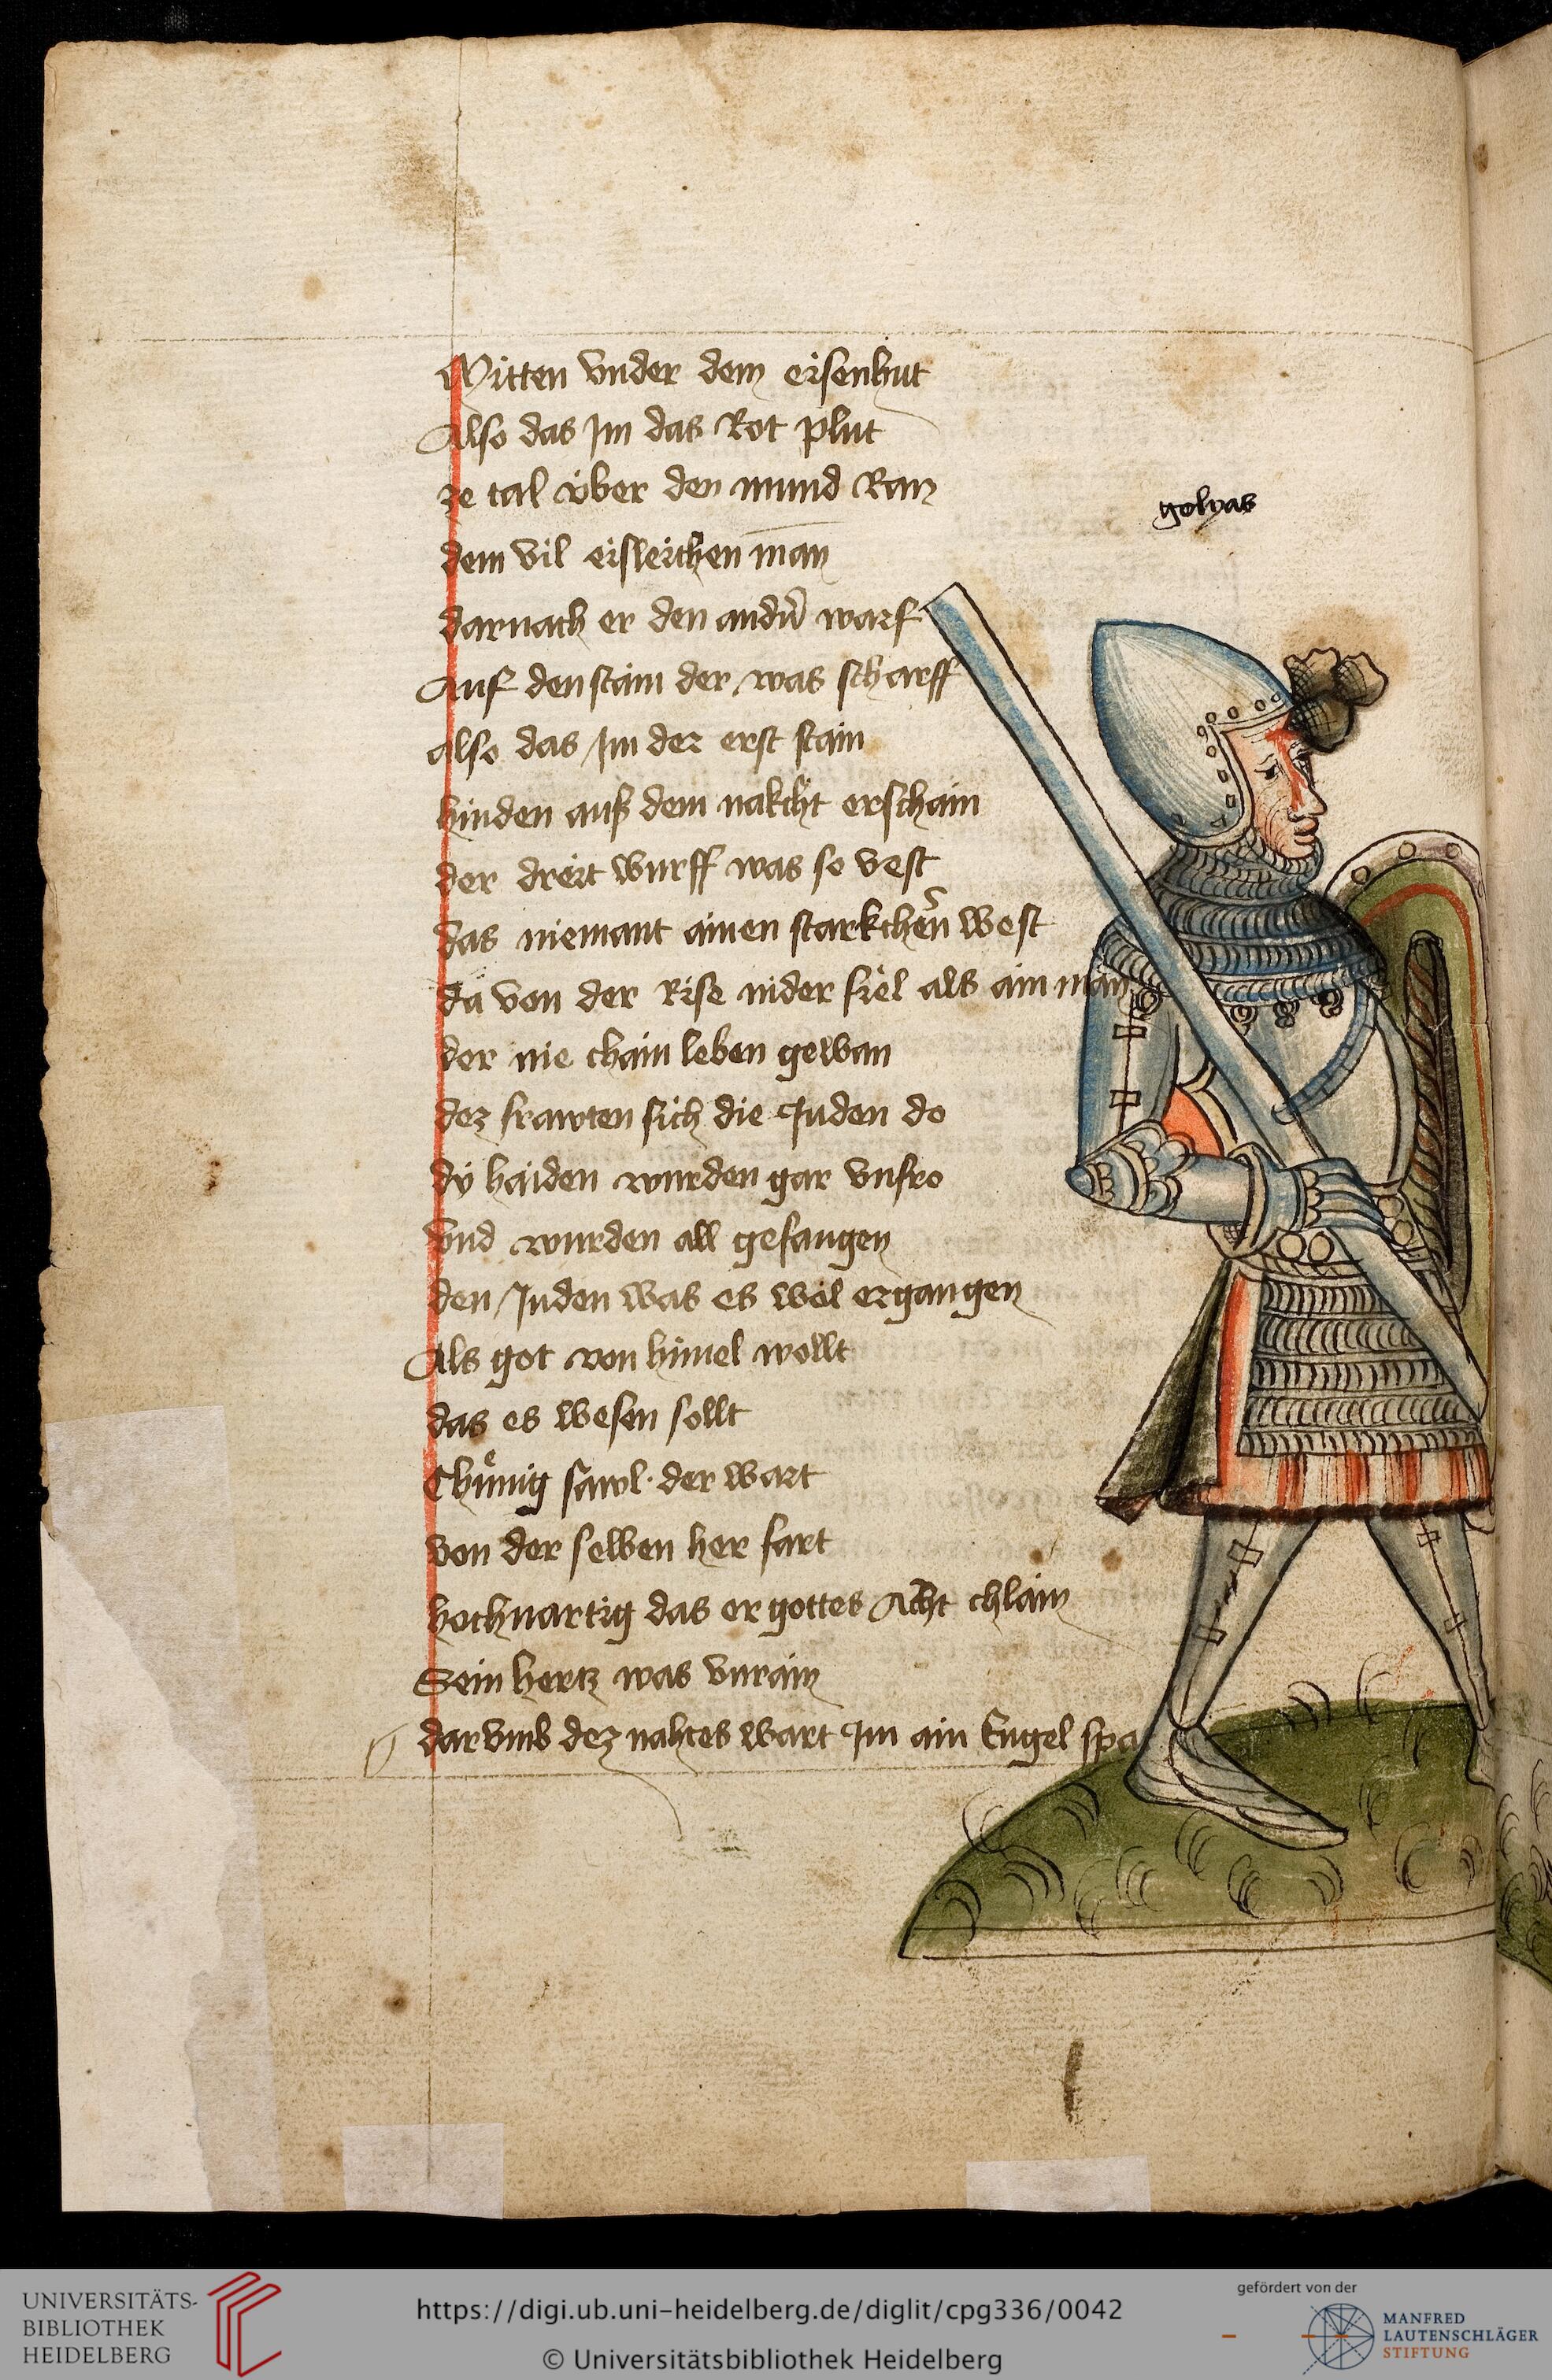 Mitten vnder dem eisenhut
Also das Im das Rot plut
ze tal vͤber den mund Ran
golyas
dem vil eisleichen man
darnach er den andñ warf
Auf den stain der was scharff
also das Im der erst stain
hinden auß dem nakcht erschain
der dreit wurff was so vest
das niemant ainen starkchern west
da von der Rise nider fiel als ain man
der nie chain leben gewan
dez frawten sich die Juden do
dy haiden wurden gar vnfro
vnd wurden all gefangen
den Juden was es wol ergangen
Als got von himel wollt
das es wesen sollt
Chuͤnig sawl der wart
von der selben her fart
hochuartig das er gottes Acht chlain
Sein hertz was vnrain
darvmb dez nahtes wart Im ain Engel spa
UNIVERSITÄTS-
BIBLIOTHEK
HEIDELBERG
https://digi.ub.uni-heidelberg.de/diglit/cpg336/0042
© Universitätsbibliothek Heidelberg
gefördert von der
MANFRED
LAUTENSCHLÄGER
STIFTUNG